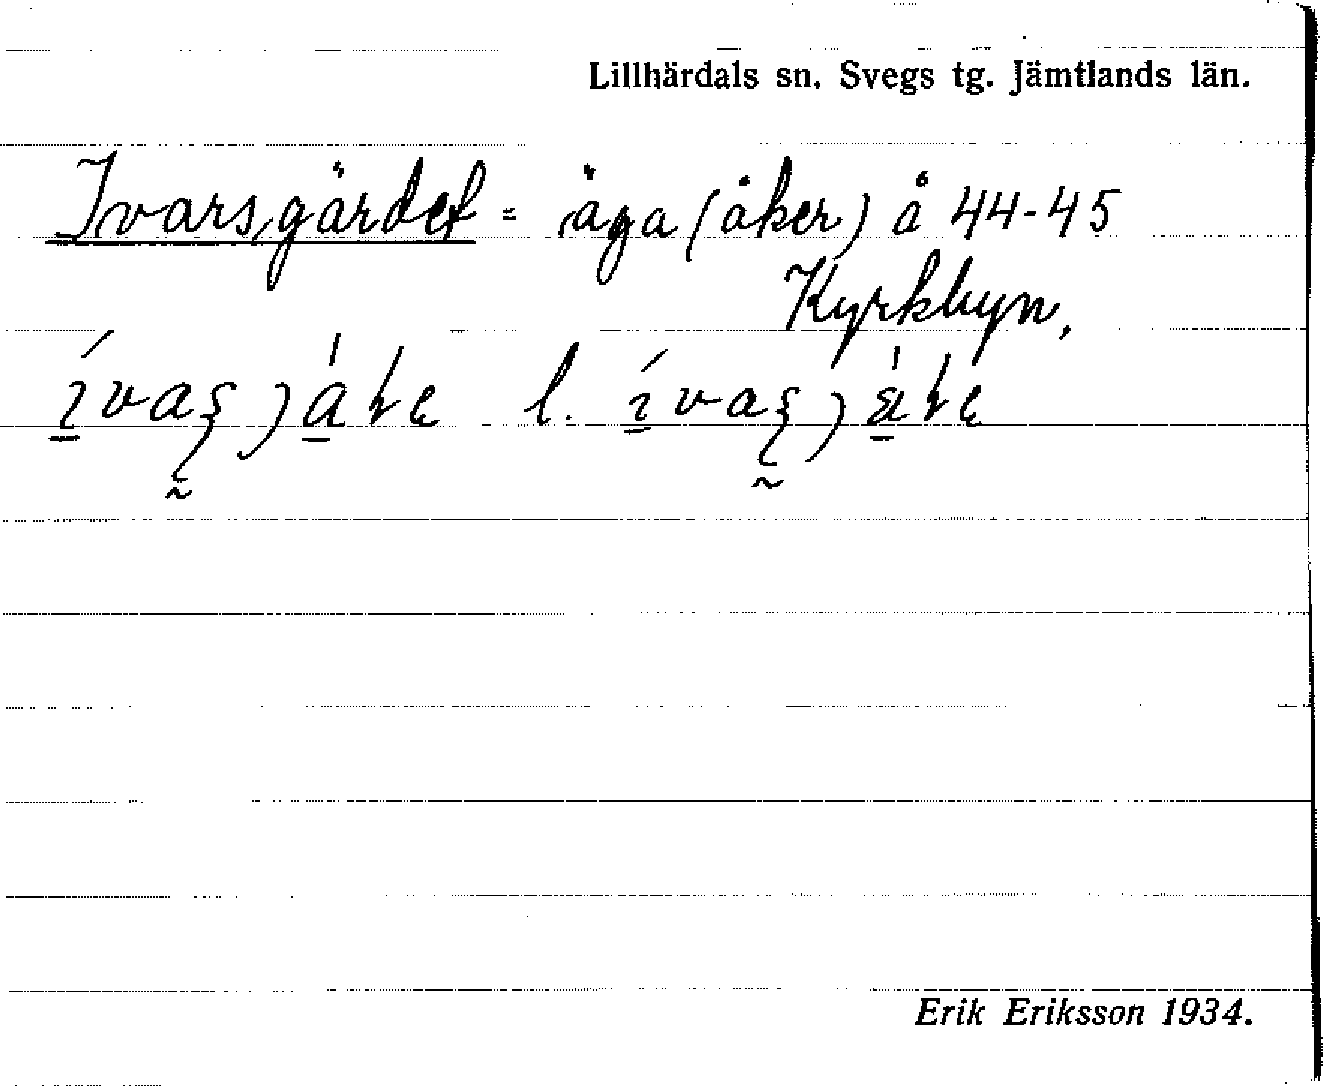 Lillhärdals sn. Svegs tg. Jämtlands län.
Ivarsgärdet = äga (åker) å 44-45
Kyrkbyn,
l.
Erik Eriksson 1934.